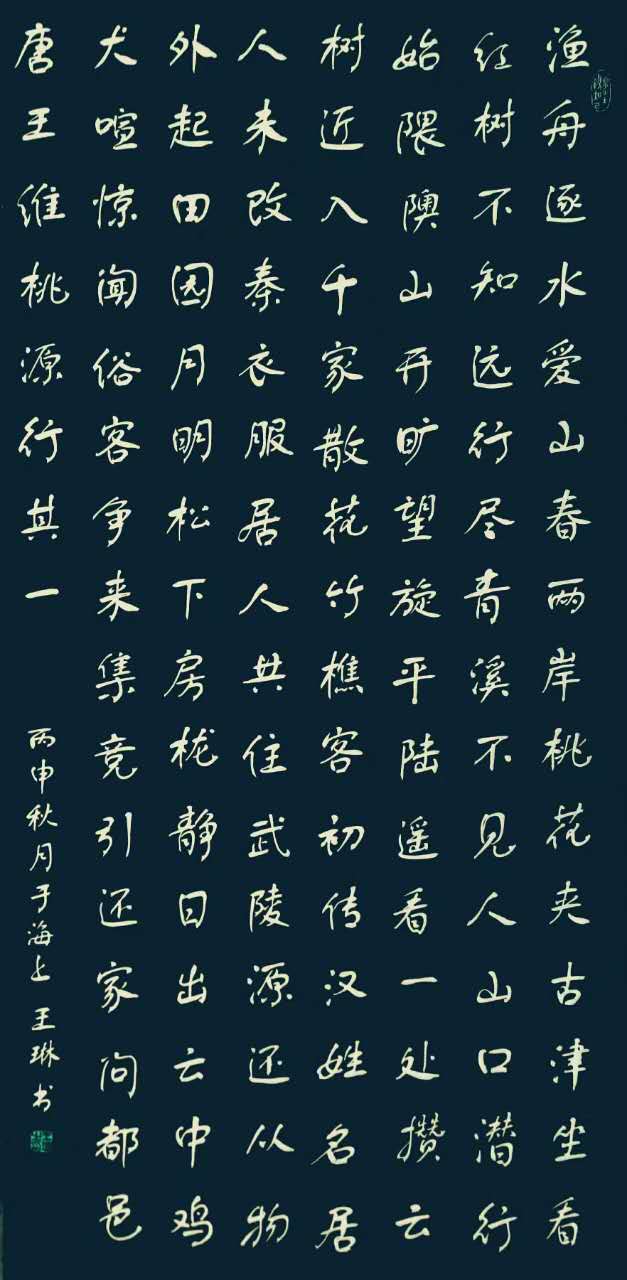 渔舟逐水爱山春两岸桃花夹古津坐看
红树不知远行尽青溪不见人山口潜行
始隈隩山开旷望旋平陆遥看一处攒云
树近入千家散花竹樵客初传汉姓名居
人未改秦衣服居人共住武陵源还从物
外起田园月明松下房栊静日出云中鸡
犬喧惊闻俗客争来集竞引还家问都邑
唐王维桃源行其一
丙申秋月于海上王琳书